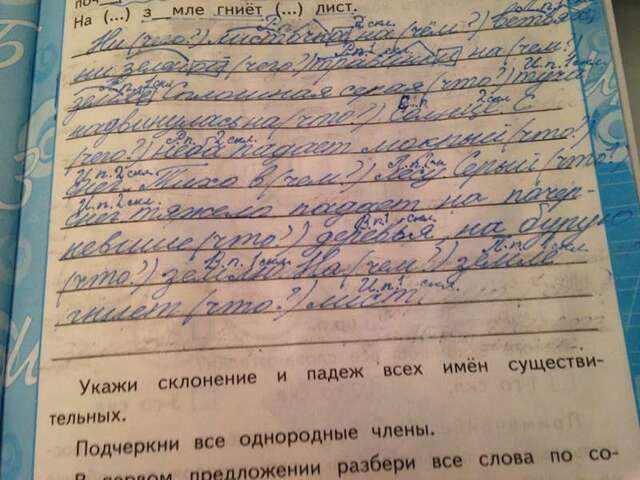 На (...) з_мле гниёт (...) лист.
Ни (чего?) листочка на (чём?) ветвях
ни зелёной (чего?) травинки на (чём?)
земле Сплошная серая (что?) туча
надвинулась на (что?) Солнце С
(чего?) неба падает мокрый (что?)
снег. Тихо в (чём?) лесу Серый (что?)
снег тяжело падает на почер-
невшие (что?) деревья на бурую
(что?) землю На (чём?) земле
гниет (что?) лист.
Укажи склонение и падеж всех имён существи-
тельных.
Подчеркни все однородные члены.
В первом предложении разбери все слова по со-